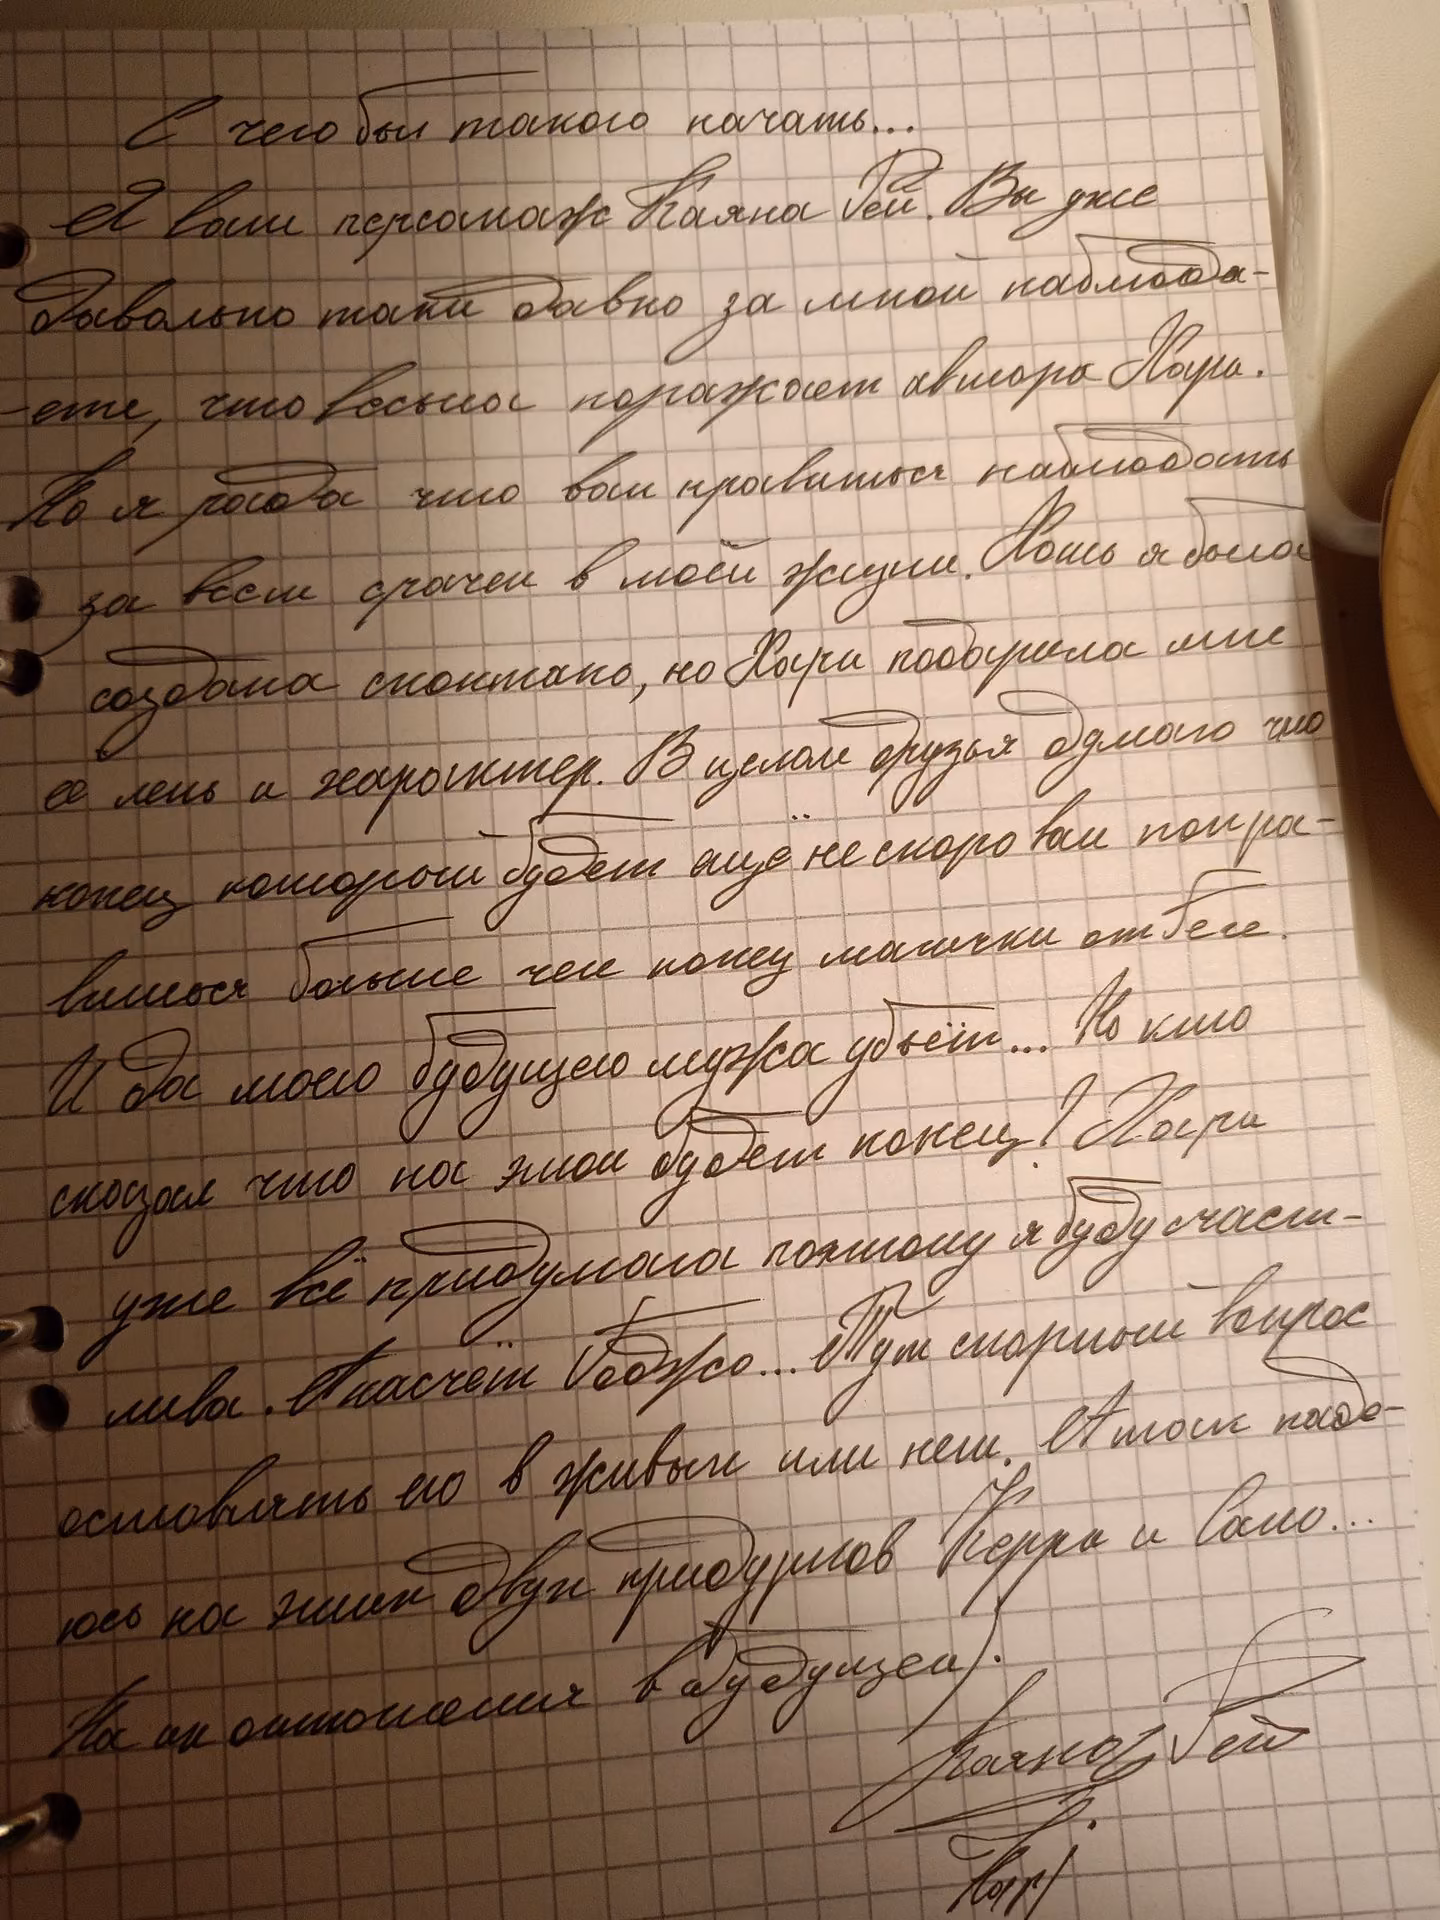 С чего бы такого начать...
Я ваш персонаж Каяна Рей. Вы уже
довольно таки давно за мной наблюда-
-ете, что весьма поражает автора Хари.
Но я рада что вам нравиться наблюдать
за всем срачем в моей жизни. Хоть я была
создана спонтано, но Хари подарила мне
её лень и характер. В целом друзья думаю что
конец который будет ещё не скоро вам понра-
виться больше чем конец магички от Геге.
И да моего будущего мужа убьёт... Но кто
сказал что на этом будет конец? Хари
уже всё придумала поэтому я буду счаст-
лива. А насчёт Годжо... Тут спорный вопрос
оставлять его в живых или нет. А так наде-
юсь на этих двух придурков Керра и Сато...
На их отношения в будущем).
Каяна Рей
Хари